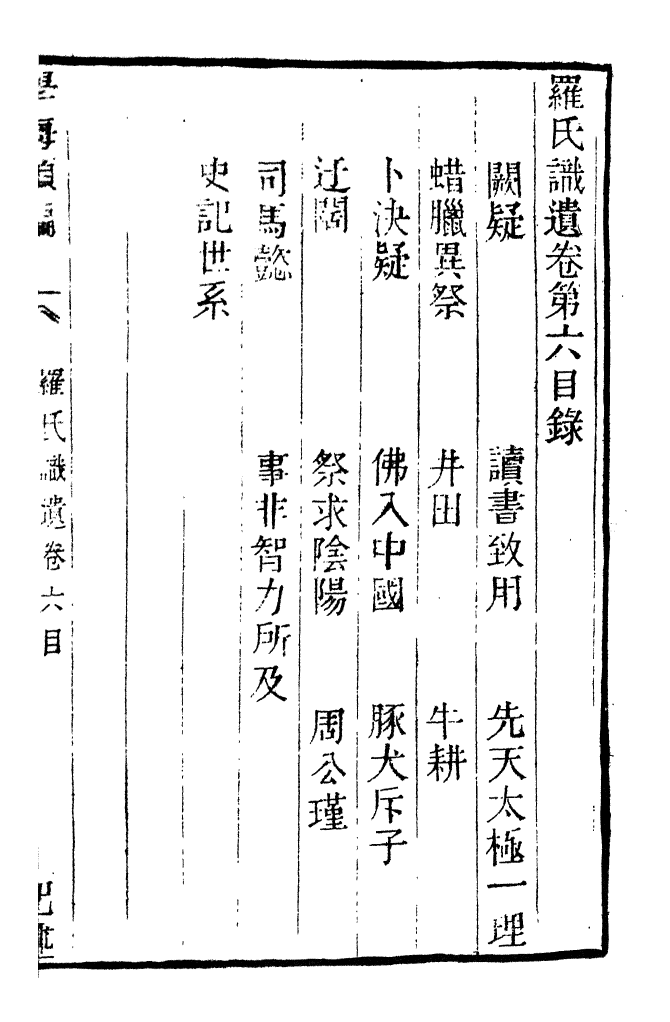 羅氏識遺卷第六目錄
闕疑 讀書致用 先天太極一理
蜡臘異祭 井田 牛耕
卜決疑 佛入中國 豚犬斥子
迂闊 祭求陰陽 周公瑾
司馬懿 事非智力所及
史記世系
羅氏識遺卷六目